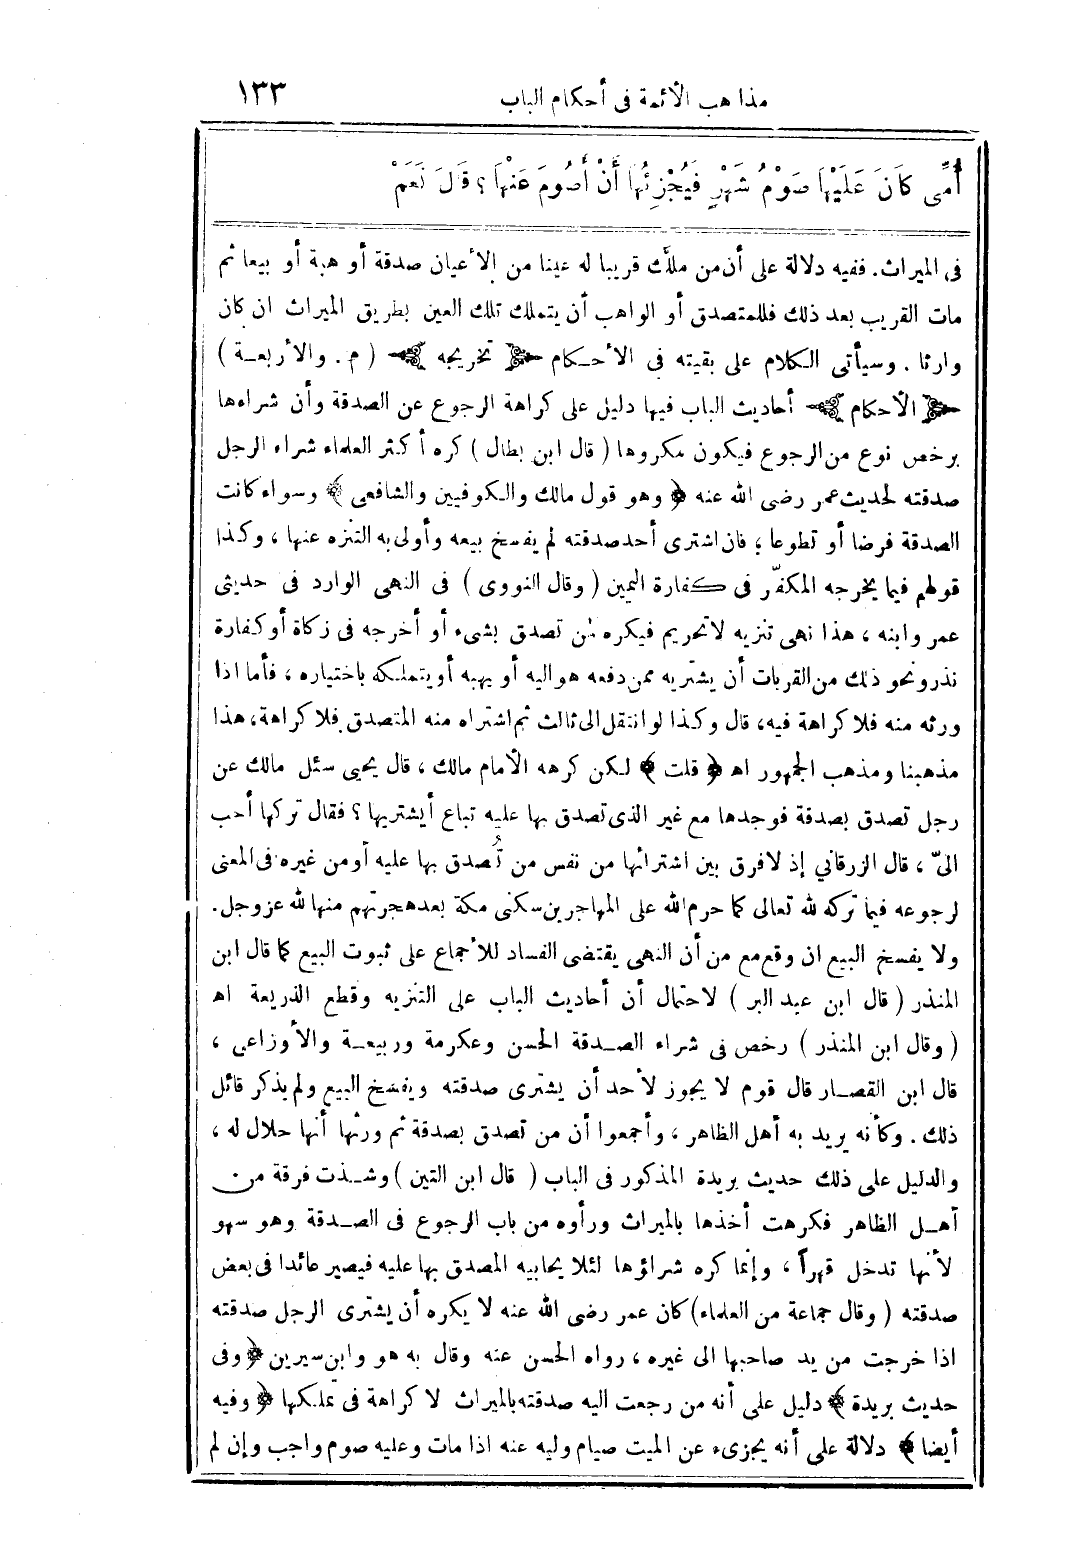 مذاهب الأئمة فى أحكام الباب ١٣٣
أُمِّى كَانَ عَلَيْهَا صَوْمُ شَهْرٍ فَيُجْزِئُهَا أَنْ أَصُومَ عَنْهَا؟ قَالَ نَعَمْ
فى الميراث. ففيه دلالة على أن من ملّك قريبا له عينا من الأعيان صدقة أو هبة أو بيعا ثم
مات القريب بعد ذلك فللمتصدق أو الواهب أن يتملك تلك العين بطريق الميراث ان كان
وارثا . وسيأتى الكلام على بقيته فى الأحكام ﴿ تخريجه ﴾ ( م . والأربعة )
﴿ الأحكام ﴾ أحاديث الباب فيها دليل على كراهة الرجوع عن الصدقة وأن شراءها
برخص نوع من الرجوع فيكون مكروها ( قال ابن بطال ) كره أكثر العلماء شراء الرجل
صدقته لحديث عمر رضى الله عنه ﴿ وهو قول مالك والكوفيين والشافعى ﴾ وسواء كانت
الصدقة فرضا أو تطوعا ؛ فان اشترى أحد صدقته لم يفسخ بيعه وأولى به التنزه عنها ، وكذا
قولهم فيما يخرجه المكفّر فى كفارة اليمين ( وقال النووى ) فى النهى الوارد فى حديثى
عمر وابنه ، هذا نهى تنزيه لا تحريم فيكره لمن تصدق بشىء أو أخرجه فى زكاة أو كفارة
نذر ونحو ذلك من القربات أن يشتريه ممن دفعه هو اليه أو يهبه أو يتملكه باختياره ، فأما اذا
ورثه منه فلا كراهة فيه، قال وكذا لو انتقل الى ثالث ثم اشتراه منه المتصدق فلا كراهة، هذا
مذهبنا ومذهب الجمهور اه ﴿ قلت ﴾ لكن كرهه الأمام مالك ، قال يحيى سئل مالك عن
رجل تصدق بصدقة فوجدها مع غير الذى تصدق بها عليه تباع أيشتريها ؟ فقال تركها أحب
الىّ ، قال الزرقاني إذ لا فرق بين اشترائها من نفس من تُصدق بها عليه أو من غيره فى المعنى
لرجوعه فيما تركه لله تعالى كما حرم الله على المهاجرين سكنى مكة بعد هجرتهم منها لله عز وجل.
ولا يفسخ البيع ان وقع مع من أن النهى يقتضى الفساد للأجماع على ثبوت البيع كما قال ابن
المنذر ( قال ابن عبد البر ) لاحتمال أن أحاديث الباب على التنزيه وقطع الذريعة اه
( وقال ابن المنذر ) رخص فى شراء الصدقة الحسن وعكرمة وربيعة والأوزاعى ،
قال ابن القصار قال قوم لا يجوز لأحد أن يشترى صدقته ويفسخ البيع ولم يذكر قائل
ذلك . وكأنه يريد به أهل الظاهر ، وأجمعوا أن من تصدق بصدقة ثم ورثها أنها حلال له ،
والدليل على ذلك حديث بريدة المذكور فى الباب ( قال ابن التين ) وشذت فرقة من
أهل الظاهر فكرهت أخذها بالميراث ورأوه من باب الرجوع فى الصدقة وهو سهو
لأنها تدخل قهراً ، وإنما كره شراؤها لئلا يحابيه المصدق بها عليه فيصير عائدا فى بعض
صدقته ( وقال جماعة من العلماء) كان عمر رضى الله عنه لا يكره أن يشترى الرجل صدقته
اذا خرجت من يد صاحبها الى غيره ، رواه الحسن عنه وقال به هو وابن سيرين ﴿ وفى
حديث بريدة ﴾ دليل على أنه من رجعت اليه صدقته بالميراث لا كراهة فى تملكها ﴿ وفيه
أيضا ﴾ دلالة على أنه يجزىء عن الميت صيام وليه عنه اذا مات وعليه صوم واجب وإن لم